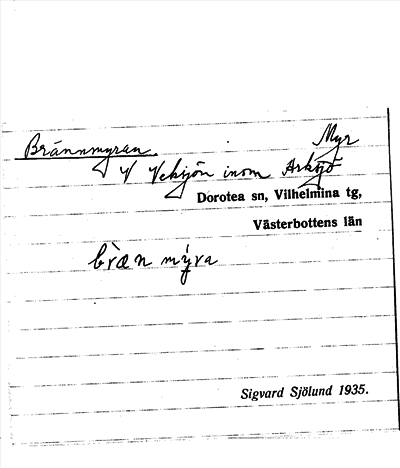 Myr
Brännmyran.
V Veksjön inom Arksjö
Dorotea sn, Vilhelmina tg,
Västerbottens län
bræn mýra
Sigvard Sjölund 1935.